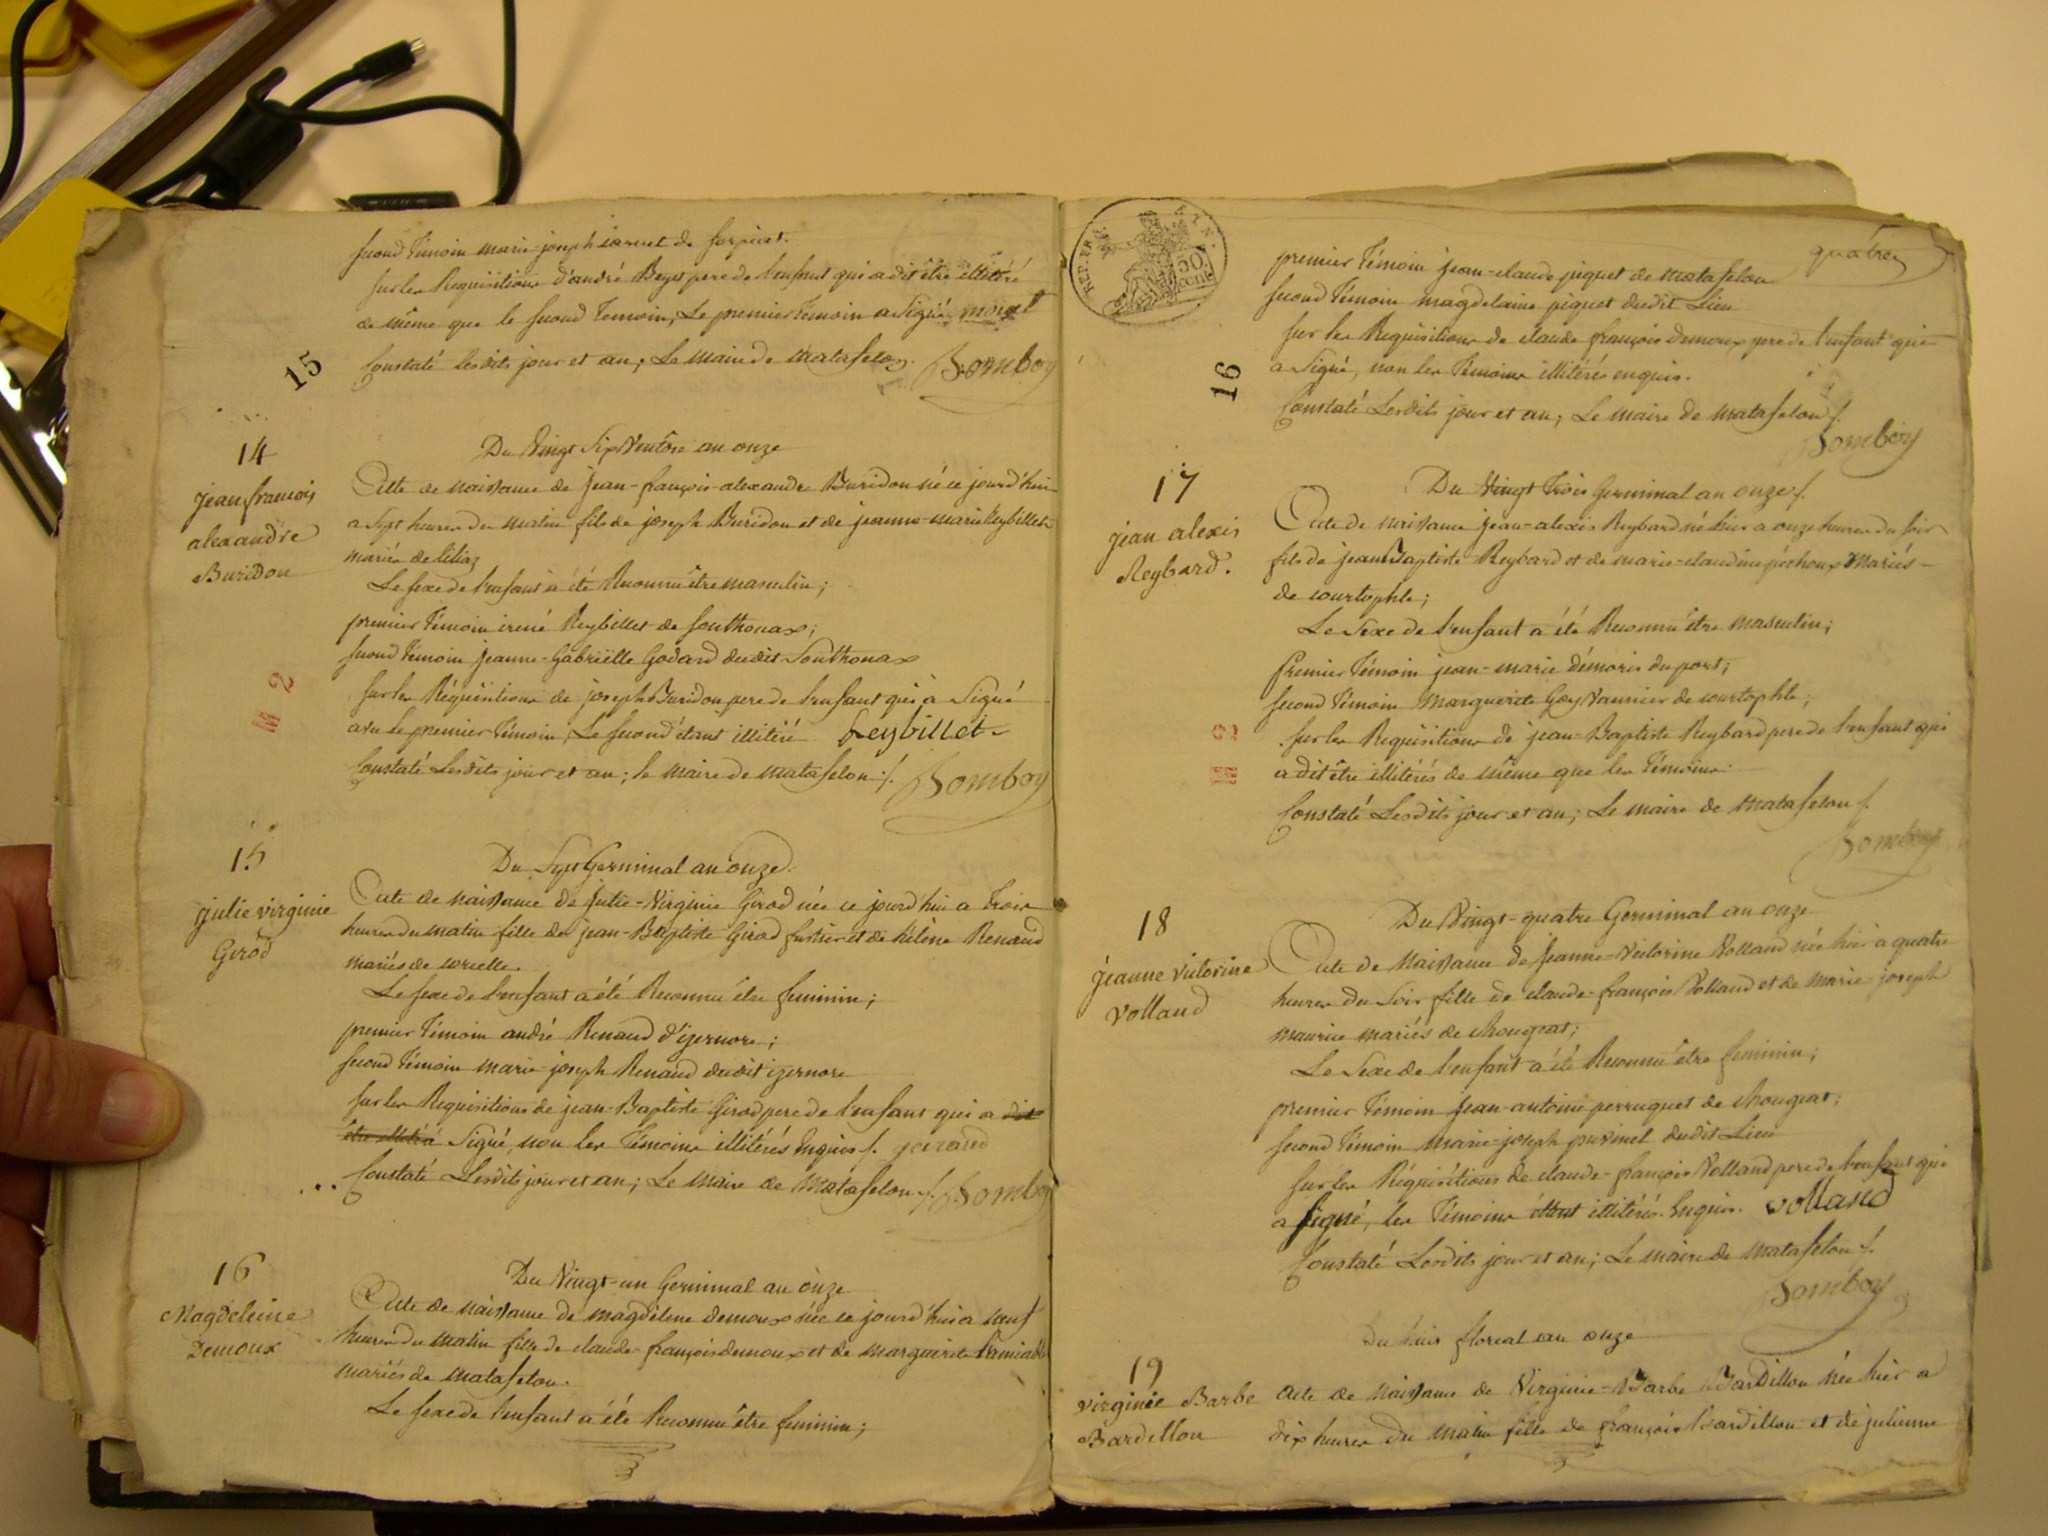 second Témoin marie-joseph de
sur les Requisitions d'andré Beyet pere de l'enfant qui a dit être illitéré
de même que le second Temoin, Le premier Temoin a Signé
Constaté lesdits jour et an; Le Maire de Matafelon. Bomboy
15
14
jean françois
alexandre
Buridon
Du Vingt Six Ventôse an onze
Acte de naissance de jean-françois-alexandre Buridon né ce jourd'hui
a Sept heures du matin fils de joseph Buridon et de jeanne-marie Reybillet
mariés de
Le sexe de l'enfant a été Reconnu être masculin;
premier Témoin irené Reybillet de Sonthonax;
second Témoin jeanne-Gabriëlle Godard dudit Sonthonax
sur les Réquisitions de joseph Buridon pere de l'enfant qui à Signé
avec le premier Témoin, Le second étant illitéré Reybillet
Constaté Lesdits jour et an; le Maire de Matafelon ./. Bomboy
E 2
15
julie virginie
Girod
Du Sept Germinal an onze.
Acte de naissance de Julie-Virginie Girod née ce jourd'hui a trois
heures du matin fille de jean-Baptiste Girod et de hélene Renaud
mariés de corcelle.
Le sexe de l'enfant a été Reconnu être feminin;
premier Témoin andré Renaud d'izernore;
second Témoin marie-joseph Renaud dudit izernore
sur les Requisitions de jean-Baptiste Girod pere de l'enfant qui a dit
être illitéré Signé, non les Témoins illitérés Enquis ./.
Constaté Lesdits jour et an; Le Maire de Matafelon ./. Bomboy
16
Magdeleine
Demoux
Du Vingt-un Germinal an onze
Acte de naissance de magdelene demoux née ce jourd'hui a neuf
heures du matin fille de claude-françois demoux et de marguerite
mariés de Matafelon.
Le sexe de l'enfant a été Reconnu être feminin;
REP. FRA.
50
cent
quatre
premier Témoin jean-claude piquet de Matafelon
second Témoin magdelaine piquet dudit Lieu
sur les Requisitions de claude françois demoux pere de l'enfant qui
a Signé, non les Témoins illitérés enquis.
Constaté Lesdits jour et an; Le Maire de Matafelon ./.
Bomboy
16
17
jean alexis
Reybard.
Du Vingt Trois Germinal an onze ./.
Acte de naissance jean-alexis Reybard né hier a onze heures du soir
fils de jean Baptiste Reybard et de marie-claudine péchoux Mariés
de courtophle;
Le Sexe de l'enfant a été Reconnu être masculin;
Premier Témoin jean-marie démoris du port;
second Témoin Marguerite Goy Vannier de courtophle;
sur les Requisitions de jean-Baptiste Reybard pere de l'enfant qui
a dit être illitérés de même que les Témoins.
Constaté Lesdits jour et an; Le Maire de Matafelon ./.
Bomboy
E 2
18
jeanne victorine
Volland
Du Vingt-quatre Germinal an onze
Acte de Naissance de Jeanne-Victorine Volland née hier a quatre
heures du Soir fille de claude-françois Volland et de Marie-joseph
maurice mariés de chougeat;
Le Sexe de l'enfant a été Reconnu être feminin;
premier Témoin Jean-antoine perruquet de chougeat;
second Témoin marie-joseph dudit Lieu
sur les Réquisitions de claude-françois Volland pere de l'enfant qui
a signé, les Témoins étant illitérés Enquis. Volland
Constaté Lesdits jour et an; Le Maire de Matafelon ./.
Bomboy
19
virginie Barbe
Bardillon
Du huit floreal an onze
Acte de Naissance de Virginie-Barbe Bardillon née hier a
dix heures du matin fille de françois Bardillon et de julienne